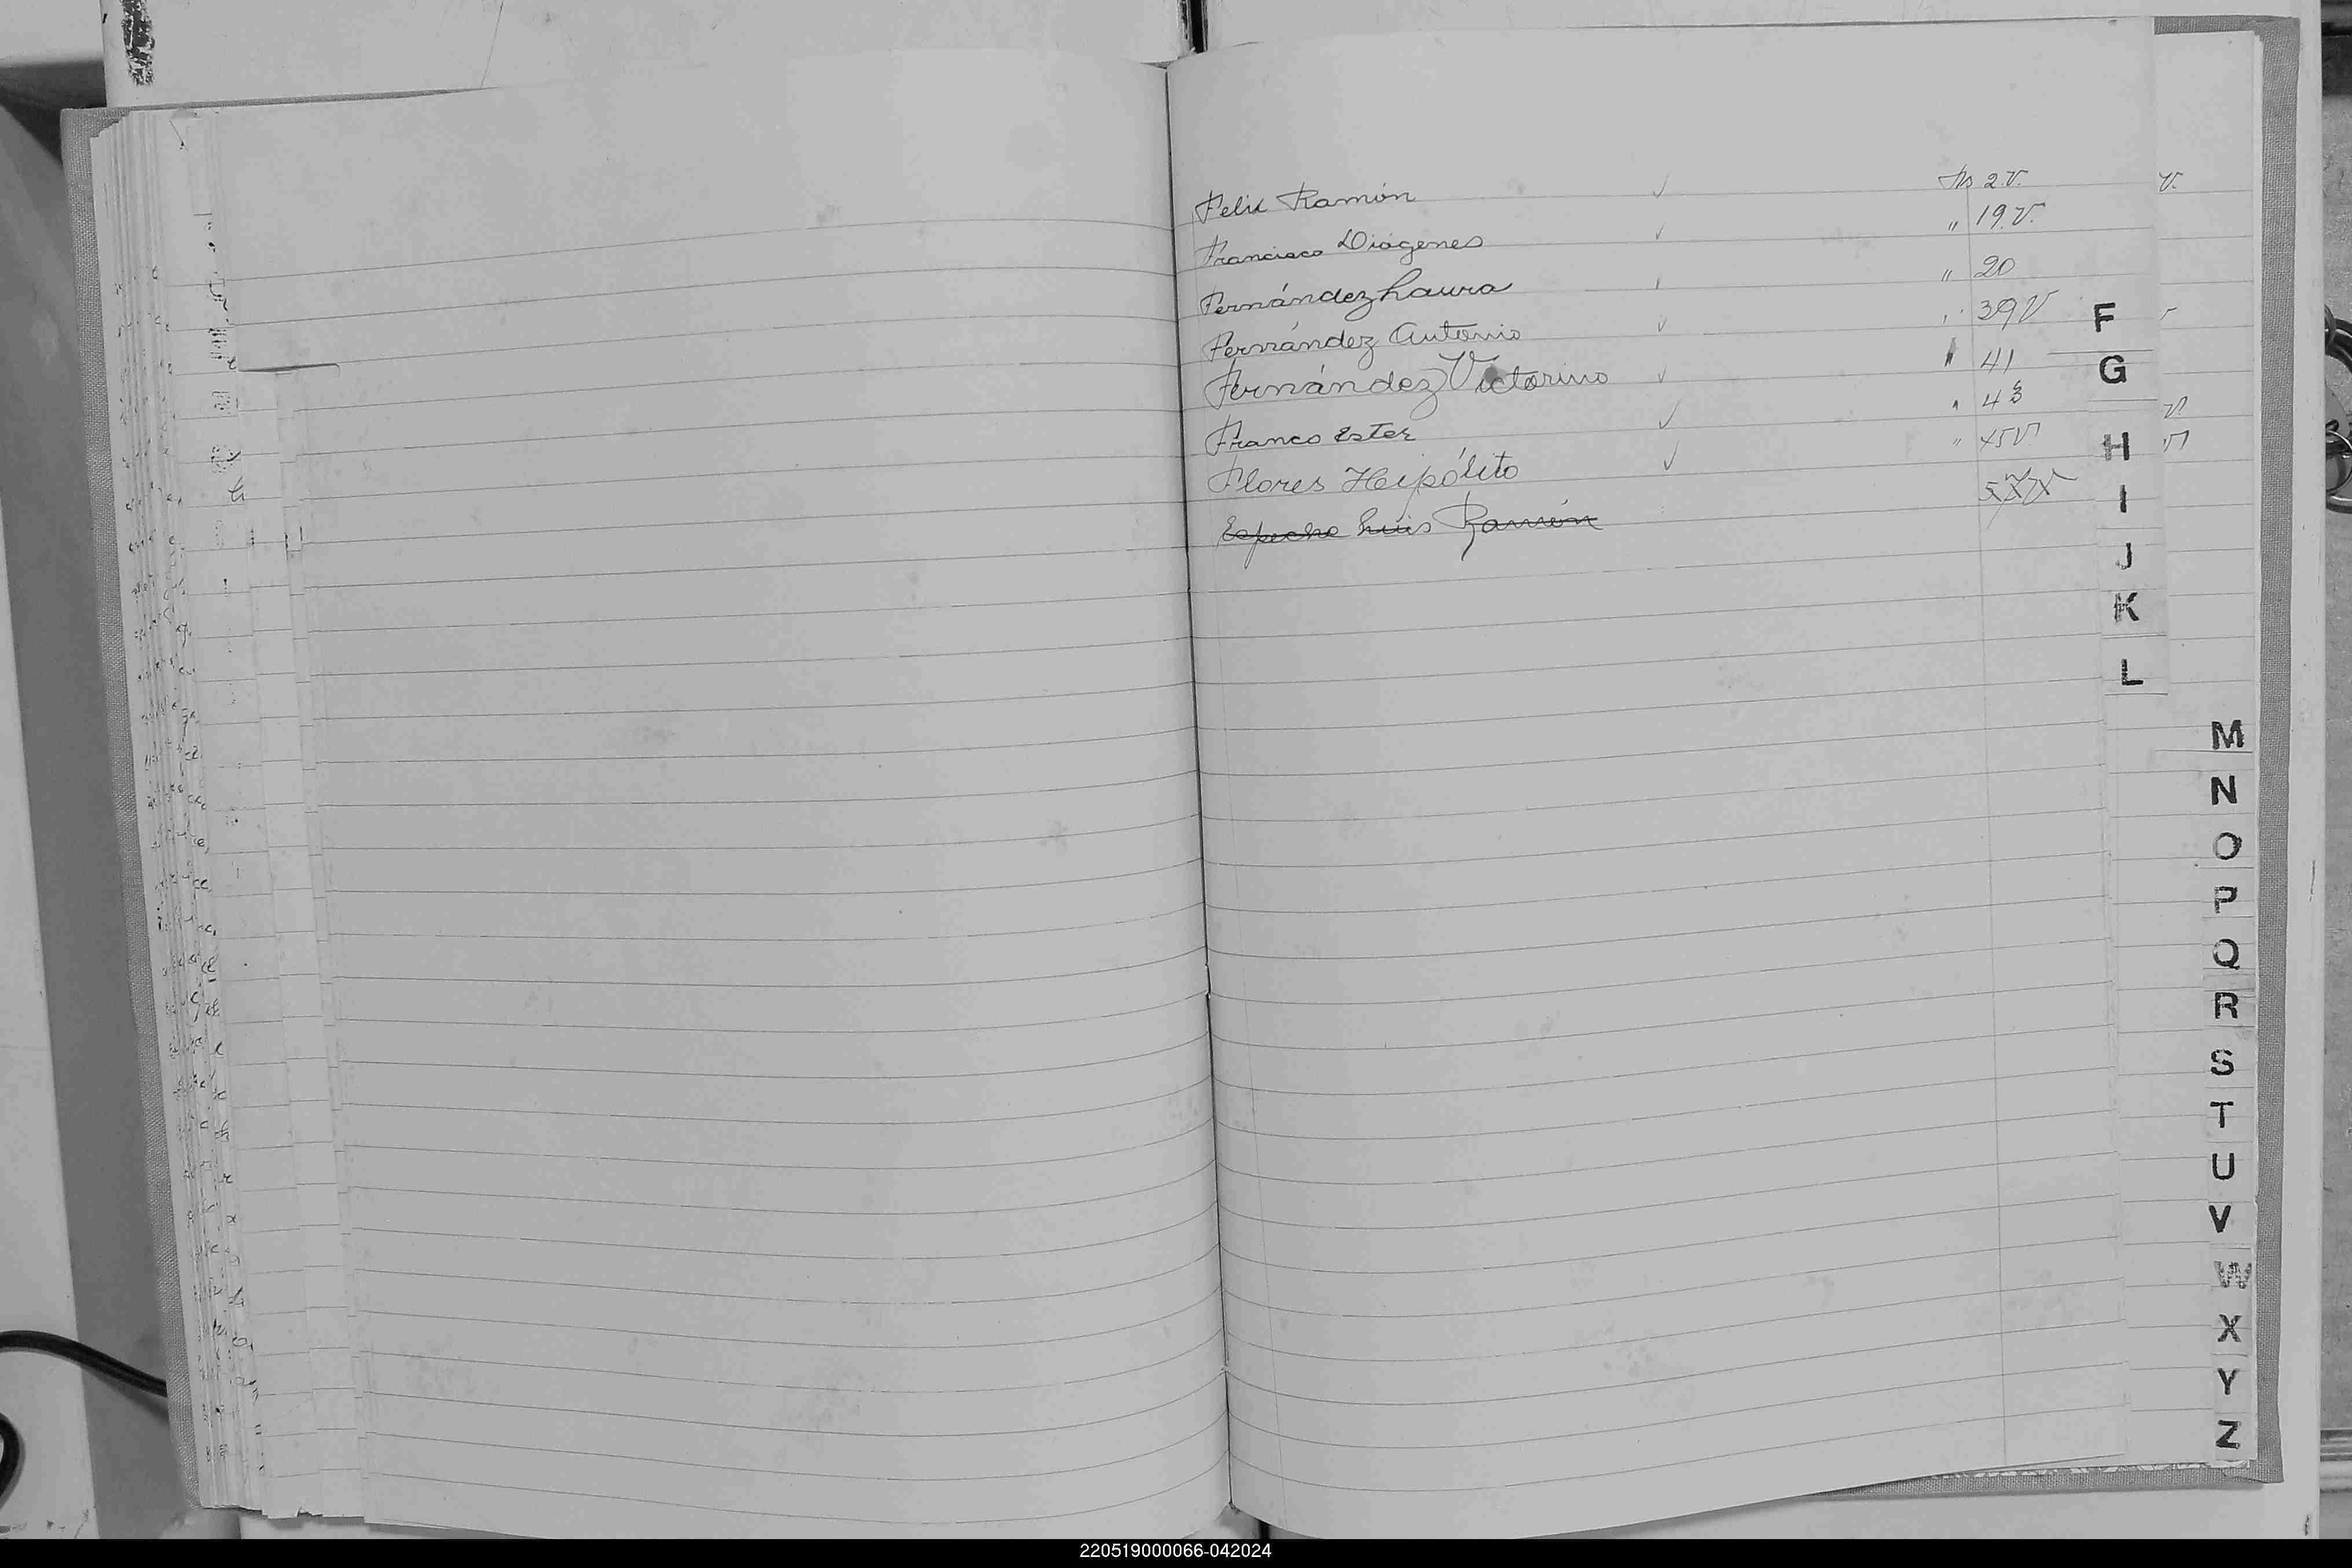 Felix Ramón ✓ Fs 2.V.
Francisco Diógenes ✓ " 19.V.
Fernández Laura " 20
Fernández Antonio ✓ " 39V
Fernández Victorino ✓ " 41
Franco Ester ✓ " 43
Flores Heipólito ✓ " 45V
Espeche Luis Ramón
F
G
H
I
J
K
L
M
N
O
P
Q
R
S
T
U
V
W
X
Y
Z
220519000066-042024